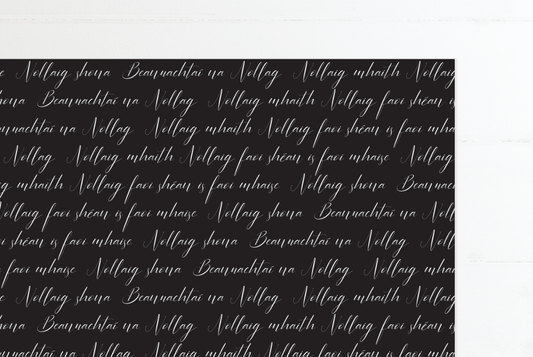 Nollaig shona Beannachtaí na Nollag Nollaig mhaith Nollaig
shona Beannachtaí na Nollag Nollaig mhaith Nollaig faoi shéan is
na Nollag Nollaig mhaith Nollaig faoi shéan is faoi mha
Nollag Nollaig mhaith Nollaig faoi shéan is faoi mhaise Nollaig
mhaith Nollaig faoi shéan is faoi mhaise Nollaig shona Beannac
Nollaig faoi shéan is faoi mhaise Nollaig shona Beannachtaí na Noll
faoi shéan is faoi mhaise Nollaig shona Beannachtaí na Nollag Noll
faoi mhaise Nollaig shona Beannachtaí na Nollag Nollaig mha
Nollaig shona Beannachtaí na Nollag Nollaig mhaith Nollaig
shona Beannachtaí na Nollag Nollaig mhaith Nollaig faoi shéan is
na Nollag Nollaig mhaith Nollaig faoi shéan is faoi mha